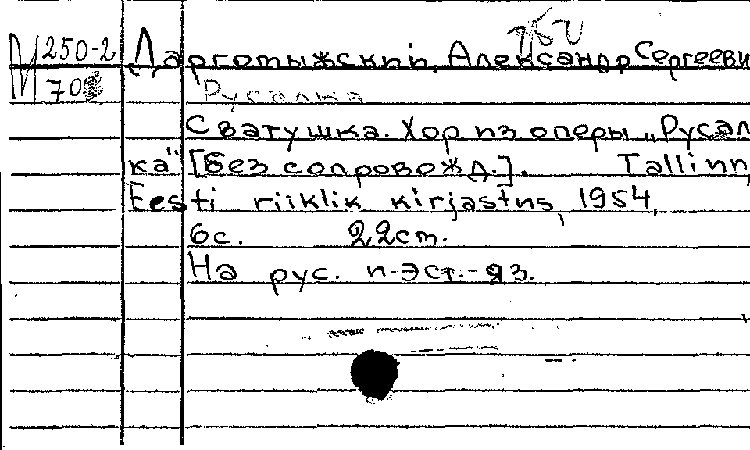 М 250-2 Даргомыжский, Александр Сергееви
70
Русалка
Сватушка. Хор из оперы „Русал
ка" [без сопровожд.]. Tallinn,
Eesti riiklik kirjastus, 1954,
6с. 22cm.
На рус. и-эст.-яз.